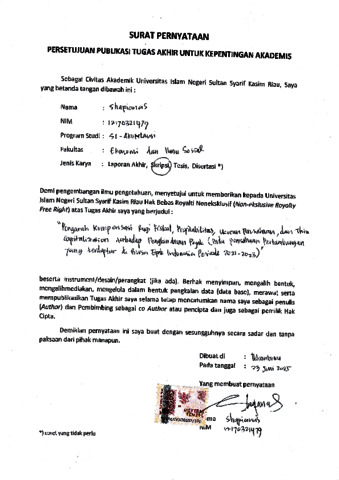 SURAT PERNYATAAN
PERSETUJUAN PUBLIKASI TUGAS AKHIR UNTUK KEPENTINGAN AKADEMIS
Sebagai Civitas Akademik Universitas Islam Negeri Sultan Syarif Kasim Riau, Saya
yang betanda tangan dibawah ini :
Nama :
NIM : 12170321479
Program Studi : S1 - Akuntansi
Fakultas : Ekonomi dan Ilmu Sosial
Jenis Karya : Laporan Akhir, Skripsi, Tesis, Disertasi *)
Demi pengembangan ilmu pengetahuan, menyetujui untuk memberikan kepada Universitas
Islam Negeri Sultan Syarif Kasim Riau Hak Bebas Royalti Noneksklusif (Non-Ekslusive Royalty
Free Right) atas Tugas Akhir saya yang berjudul :
"Pengaruh Kompensasi Rugi Fiskal, Profitabilitas, Ukuran Perusahaan, dan Thin
Capitalization terhadap Penghindaran Pajak (Pada perusahaan Pertambangan
yang terdaftar di Bursa Efek Indonesia Periode 2021-2023)
beserta instrument/desain/perangkat (jika ada). Berhak menyimpan, mengalih bentuk,
mengalihmediakan, mengelola dalam bentuk pangkalan data (data base), merawat serta
mempublikasikan Tugas Akhir saya selama tetap mencantumkan nama saya sebagai penulis
(Author) dan Pembimbing sebagai co Author atau pencipta dan juga sebagai pemilik Hak
Cipta.
Demikian pernyataan ini saya buat dengan sesungguhnya secara sadar dan tanpa
paksaan dari pihak manapun.
Dibuat di : Pekanbaru
Pada tanggal : 23 Juni 2025
Yang membuat pernyataan
METERAI
TEMPEL
Nama
NIM 12170321479
*) coret yang tidak perlu